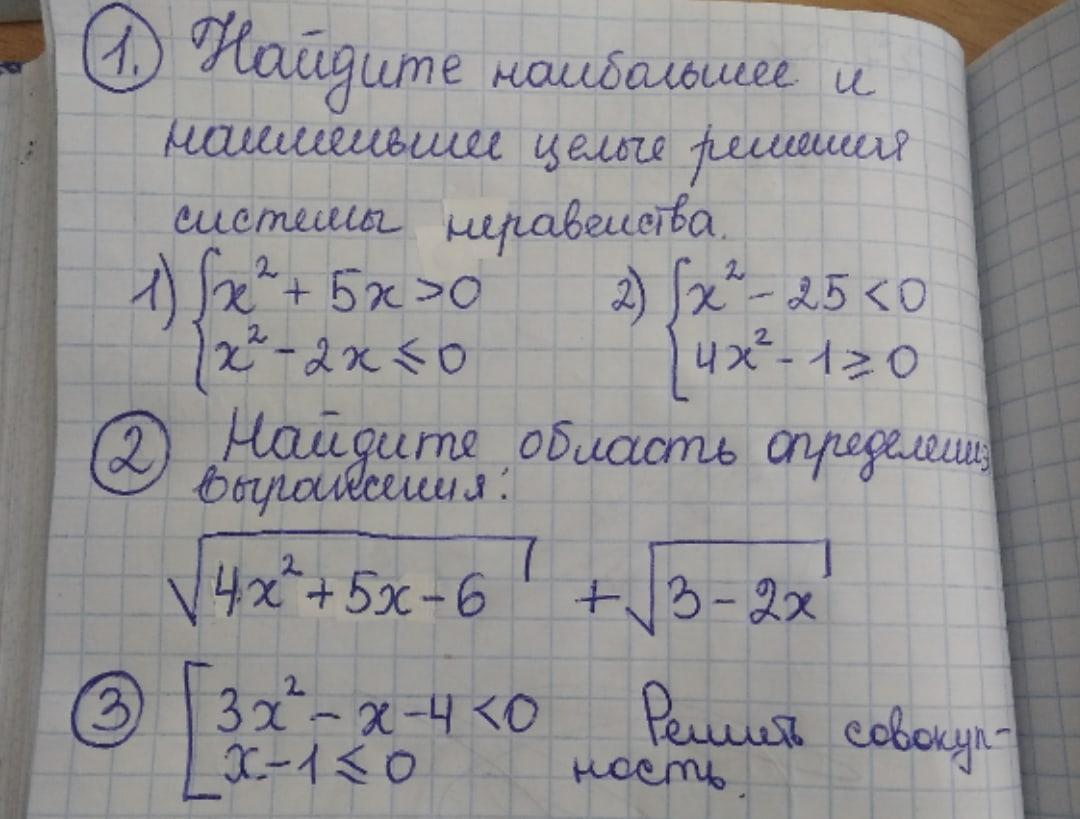 1. Найдите наибольшее и
наименьшее целые решения
системы неравенства.
1) { x² + 5x > 0 2) { x² - 25 < 0
x² - 2x ≤ 0 4x² - 1 ≥ 0
2 Найдите область определения
выражения:
√4x² + 5x - 6 + √3 - 2x
3 [ 3x² - x - 4 < 0 Решить совокуп-
x - 1 ≤ 0 ность.